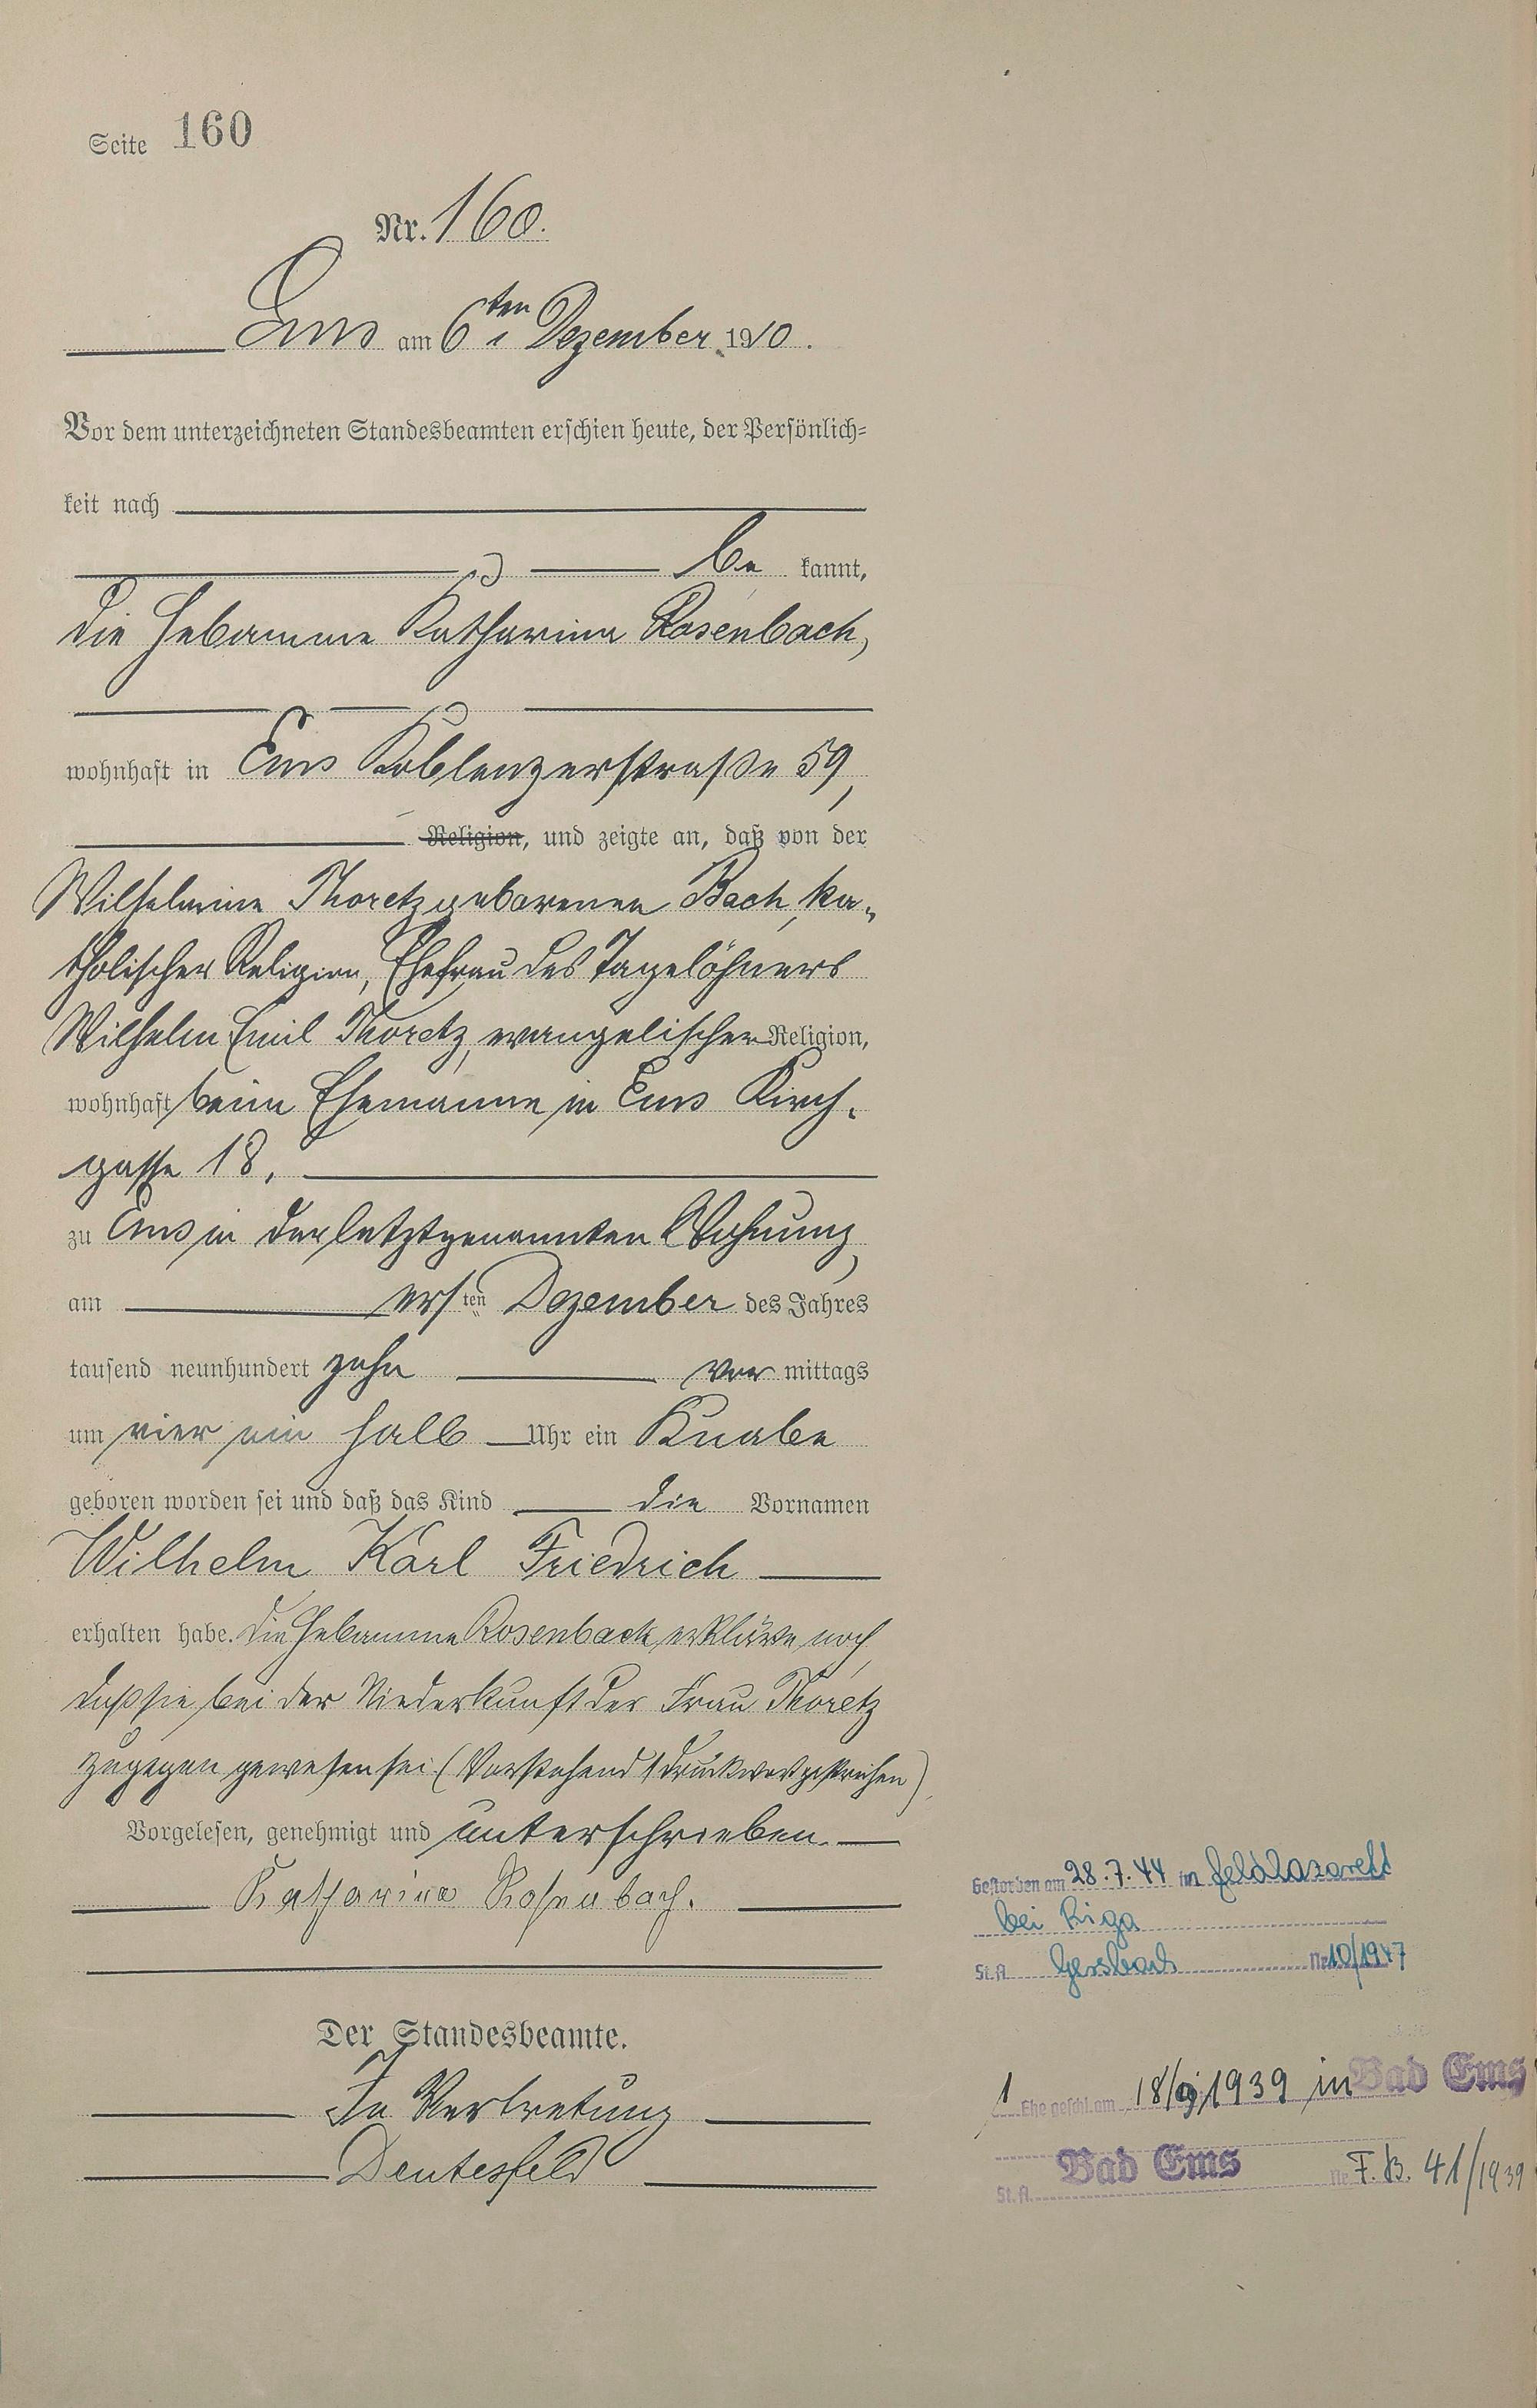 Seite 160
Nr. 160.
Ems am 6ten Dezember 1910.
Vor dem unterzeichneten Standesbeamten erschien heute, der Persönlich=
keit nach
be kannt,
die Hebamme Katharina Rosenbach,
wohnhaft in Ems Koblenzerstraße 59,
Religion, und zeigte an, daß von der
Wilhelmine Thoretz geborenen Bach, ka-
tholischer Religion, Ehefrau des Tagelöhners
Wilhelm Emil Thoretz, evangelischer Religion,
wohnhaft beim Ehemanne in Ems Kirch-
gasse 18,
zu Ems in der letztgenannten Wohnung,
am ersten Dezember des Jahres
tausend neunhundert zehn vor mittags
um vier ein halb Uhr ein Knabe
geboren worden sei und daß das Kind die Vornamen
Wilhelm Karl Friedrich
erhalten habe. Die Hebamme Rosenbach erklärte noch,
daß sie bei der Niederkunft der Frau Thoretz
zugegen gewesen sei (Vorstehend 1 Druckwort gestrichen).
Vorgelesen, genehmigt und unterschrieben.
Katharina Rosenbach.
Der Standesbeamte.
In Vertretung
Deutesfeld
Gestorben am 28.7.44 in Feldlazarett
bei Riga
St.A. Nr. 10/1947
1 Ehe geschl. am 18/9 1939 in Bad Ems
St.A. Bad Ems Nr. F.B. 41/1939